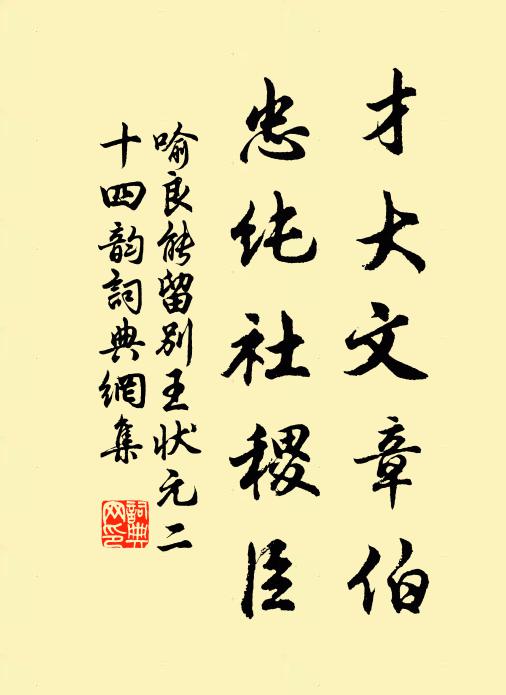 才大文章伯
忠纯社稷臣
喻良能留别王状元二
十四韵詞典網集
詞典网印